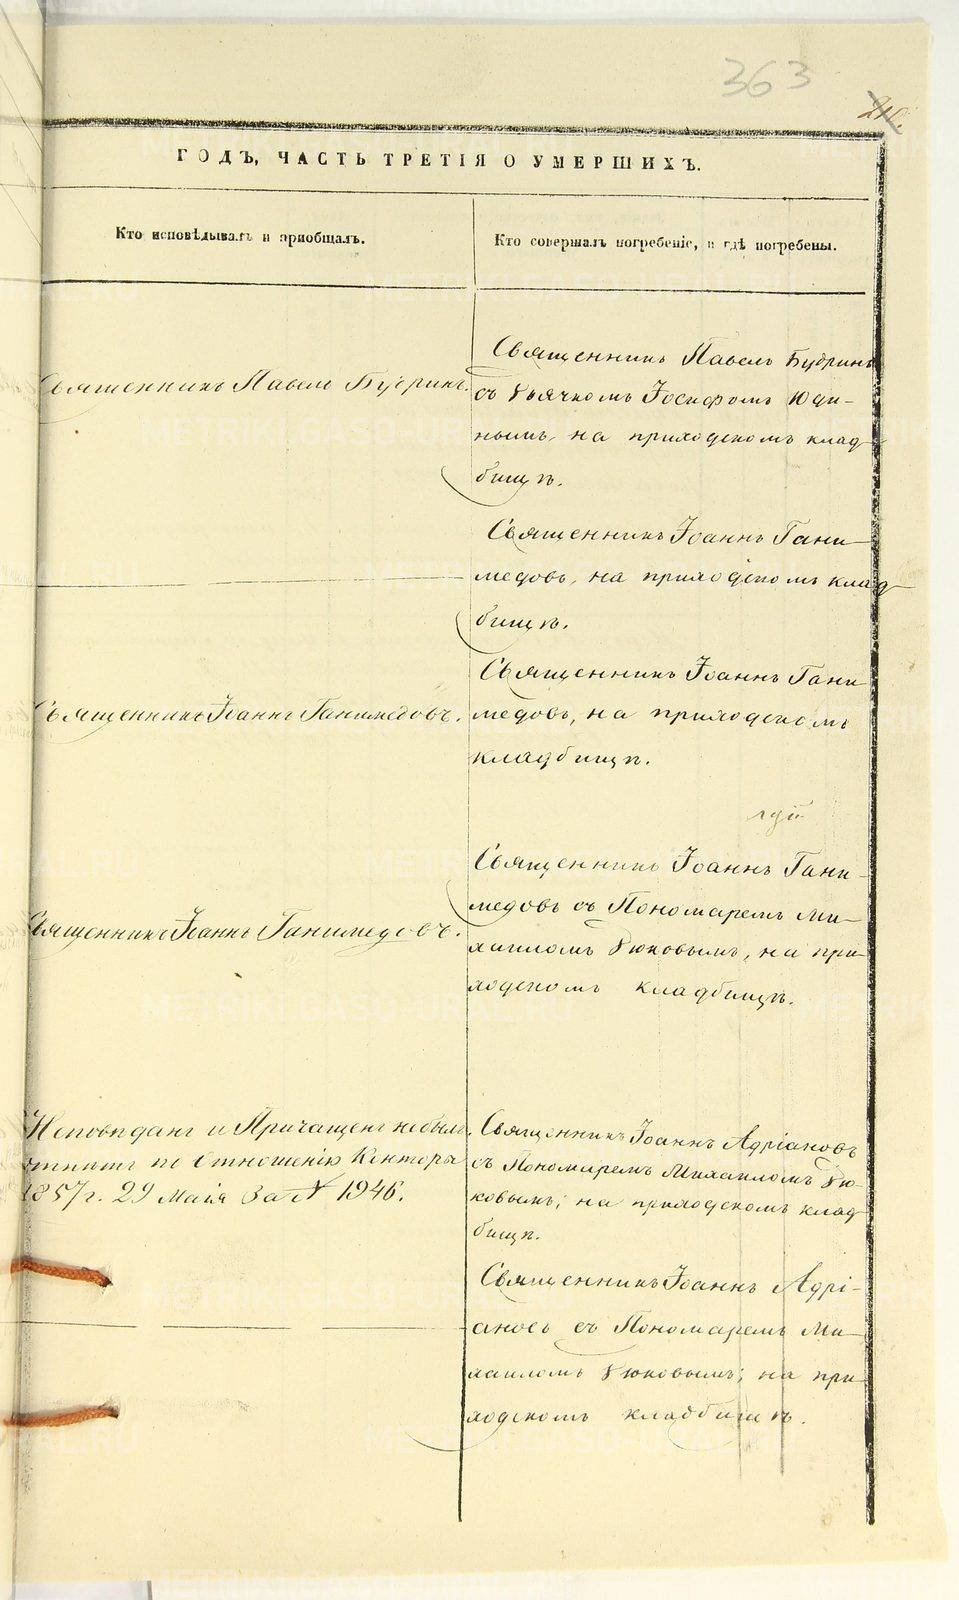 363
ГОДЪ, ЧАСТЬ ТРЕТІЯ О УМЕРШИХЪ.
Кто исповѣдывалъ и приобщалъ.
Кто совершалъ погребеніе, и гдѣ погребены.
Священникъ Павелъ Будринъ.
Священникъ Павелъ Будринъ
съ дьячкомъ Іосифомъ Юди-
нымъ, на приходскомъ клад-
бищѣ.
Священникъ Іоаннъ Гани-
медовъ, на приходскомъ клад-
бищѣ.
Священникъ Іоаннъ Ганимедовъ.
Священникъ Іоаннъ Гани-
медовъ, на приходскомъ
кладбищѣ.
Священникъ Іоаннъ Ганимедовъ.
Священникъ Іоаннъ Гани-
медовъ съ Пономаремъ Ми-
хаиломъ Дюковымъ, на при-
ходскомъ кладбищѣ.
Исповѣданъ и Причащенъ небылъ,
отпѣтъ по Отношенію Конторы
1857 г. 29 Маія За № 1946.
Священникъ Іоаннъ Адріановъ
съ Пономаремъ Михаиломъ Дю-
ковымъ, на приходскомъ клад-
бищѣ.
Священникъ Іоаннъ Адрі-
ановъ съ Пономаремъ Ми-
хаиломъ Дюковымъ, на при-
ходскомъ кладбищѣ.
METRIKI.GASO-URAL.RU